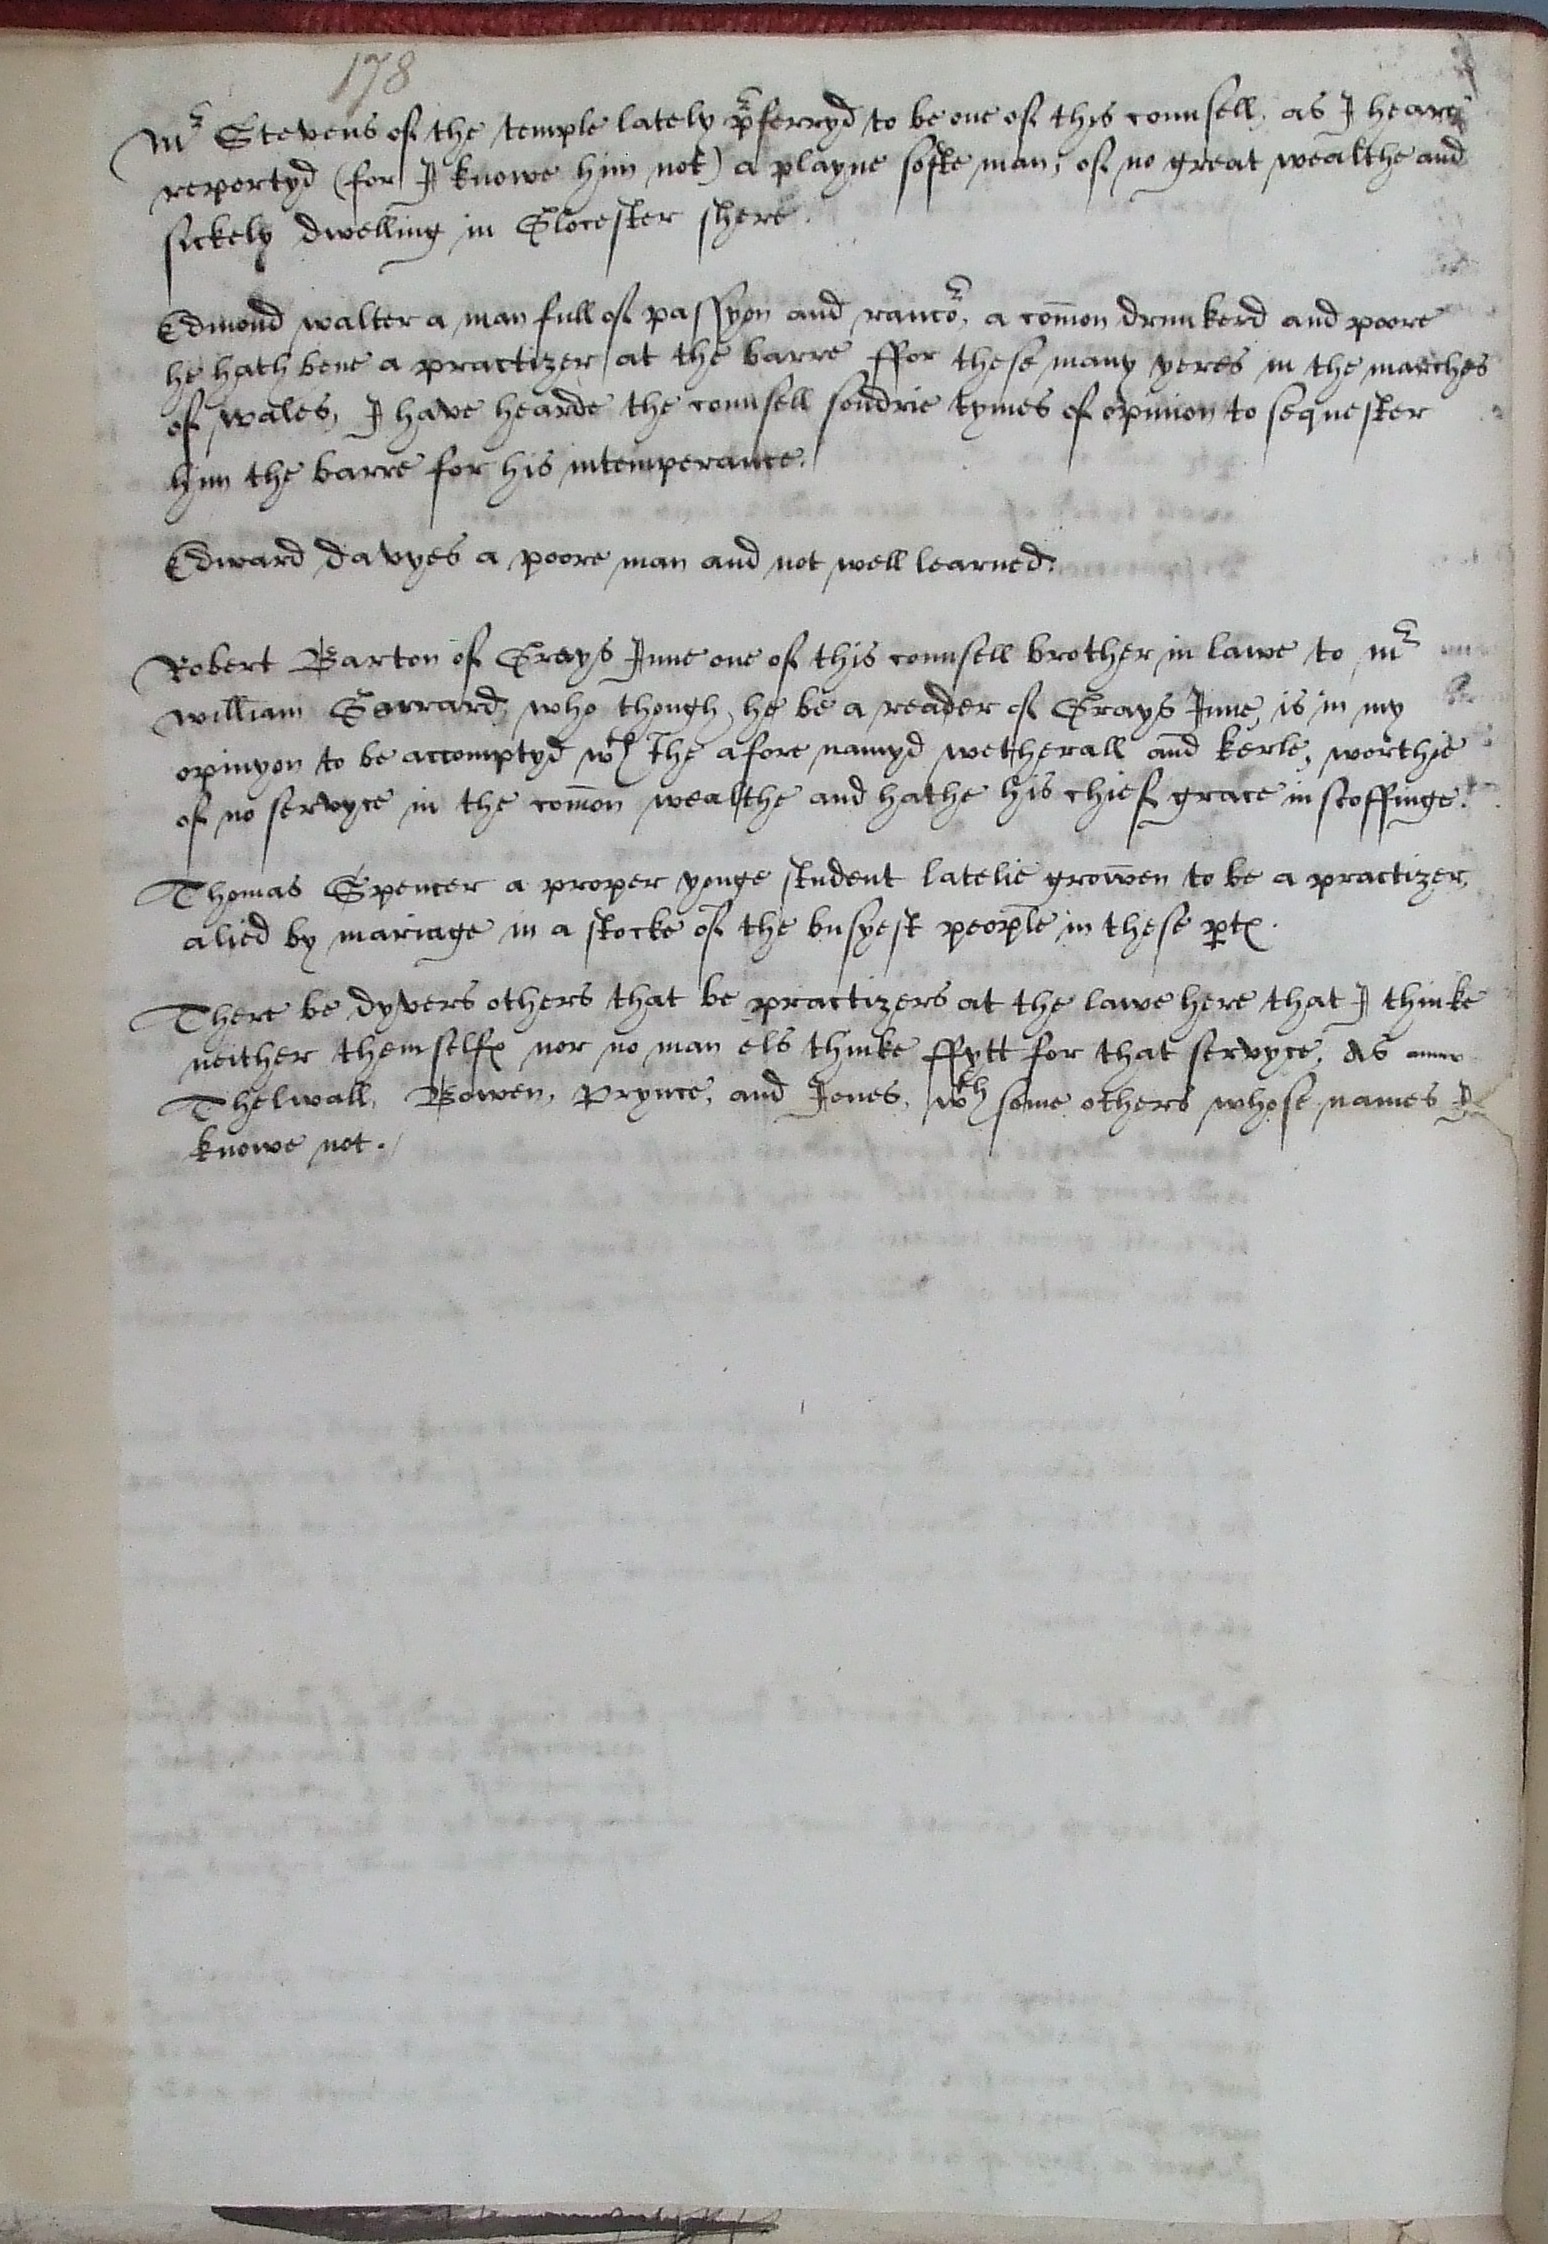 178
Mr Stevens of the temple lately p̱ferryd to be one of this counsell, as I heare
reportyd (for I knowe him not) a playne softe man, of no great wealthe and
sickely dwelling in Glocester shere.
Edmond walter a man full of passyon and rancor, a com̄on drunkerd and poore
he hath bene a practizer at the barre ffor these many yeres in the marches
of wales, I have hearde the counsell sondrie tymes of opinion to sequester
him the barre for his intemperance.
Edward davyes a poore man and not well learned.
Robert Barton of Grays Inne one of this counsell brother in lawe to Mr
william Gerrard, who though he be a reader of Grays Inne, is in my
opinyon to be accomptyd wth the afore namyd wetherall and kerle, worthie
of no servyce in the com̄on wealthe and hathe his chief grace in scoffinge.
Thomas Spencer a proper yonge student latelie growen to be a practizer,
alied by mariage in a stocke of the busyest people in these ptes.
There be dyvers others that be practizers at the lawe here that I thinke
neither themselfes nor no man els thinke ffytt for that servyce, As
Thelwall, Bowen, Prynce, and Jones, wth some others whose names I
knowe not.